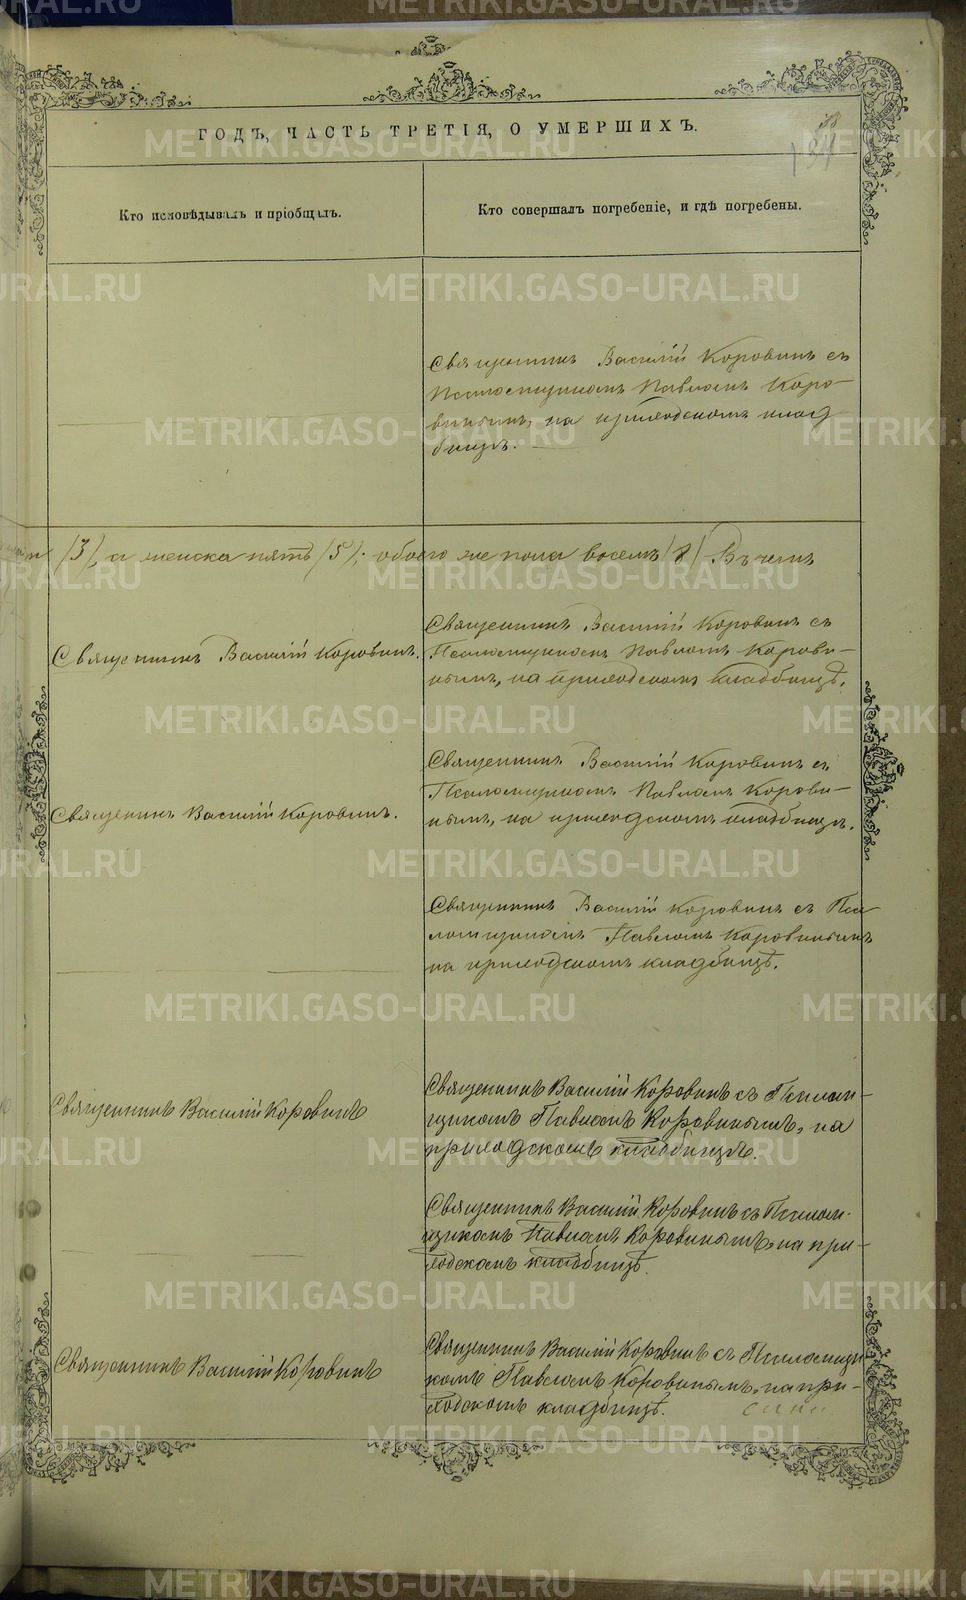 ГОДЪ, ЧАСТЬ ТРЕТІЯ, О УМЕРШИХЪ.
Кто исповѣдывалъ и пріобщалъ.
Кто совершалъ погребеніе, и гдѣ погребены.
Священникъ Василій Коровинъ съ
Псаломщикомъ Павломъ Коро-
винымъ, на приходскомъ клад
бищѣ.
/3/, а женска пять /5/; обоего же пола восемь /8/ Въ чемъ
Священникъ Василій Коровинъ.
Священникъ Василій Коровинъ съ
Псаломщикомъ Павломъ Корови-
нымъ, на приходскомъ кладбищѣ.
Священникъ Василій Коровинъ.
Священникъ Василій Коровинъ съ
Псаломщикомъ Павломъ Корови-
нымъ, на приходскомъ кладбищѣ.
Священникъ Василій Коровинъ съ Пса
ломщикомъ Павломъ Коровинымъ
на приходскомъ кладбищѣ.
Священникъ Василій Коровинъ
Священникъ Василій Коровинъ съ Псалом-
щикомъ Павломъ Коровинымъ, на
приходскомъ кладбищѣ.
Священникъ Василій Коровинъ съ Псалом-
щикомъ Павломъ Коровинымъ, на при-
ходскомъ кладбищѣ.
Священникъ Василій Коровинъ
Священникъ Василій Коровинъ съ Псаломщи
комъ Павломъ Коровинымъ, на при-
ходскомъ кладбищѣ.
METRIKI.GASO-URAL.RU